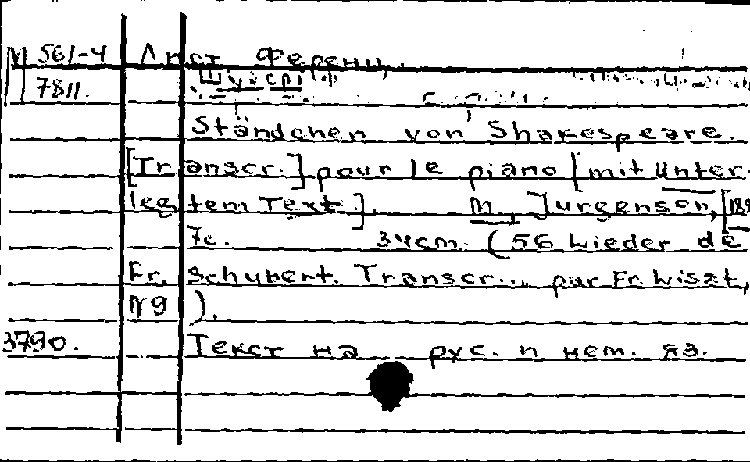 М 561-4 Лист Ференц.
7811.
Ständchen von Shakespeare.
[Transcr.] pour le piano [mit unter-
legtem Text]. М., Jurgenson,
7с. 34cm. (56 Lieder de
Fr. Schubert. Transcr... par Fr. Liszt,
N 9).
3790. Текст на рус. и нем. яз.